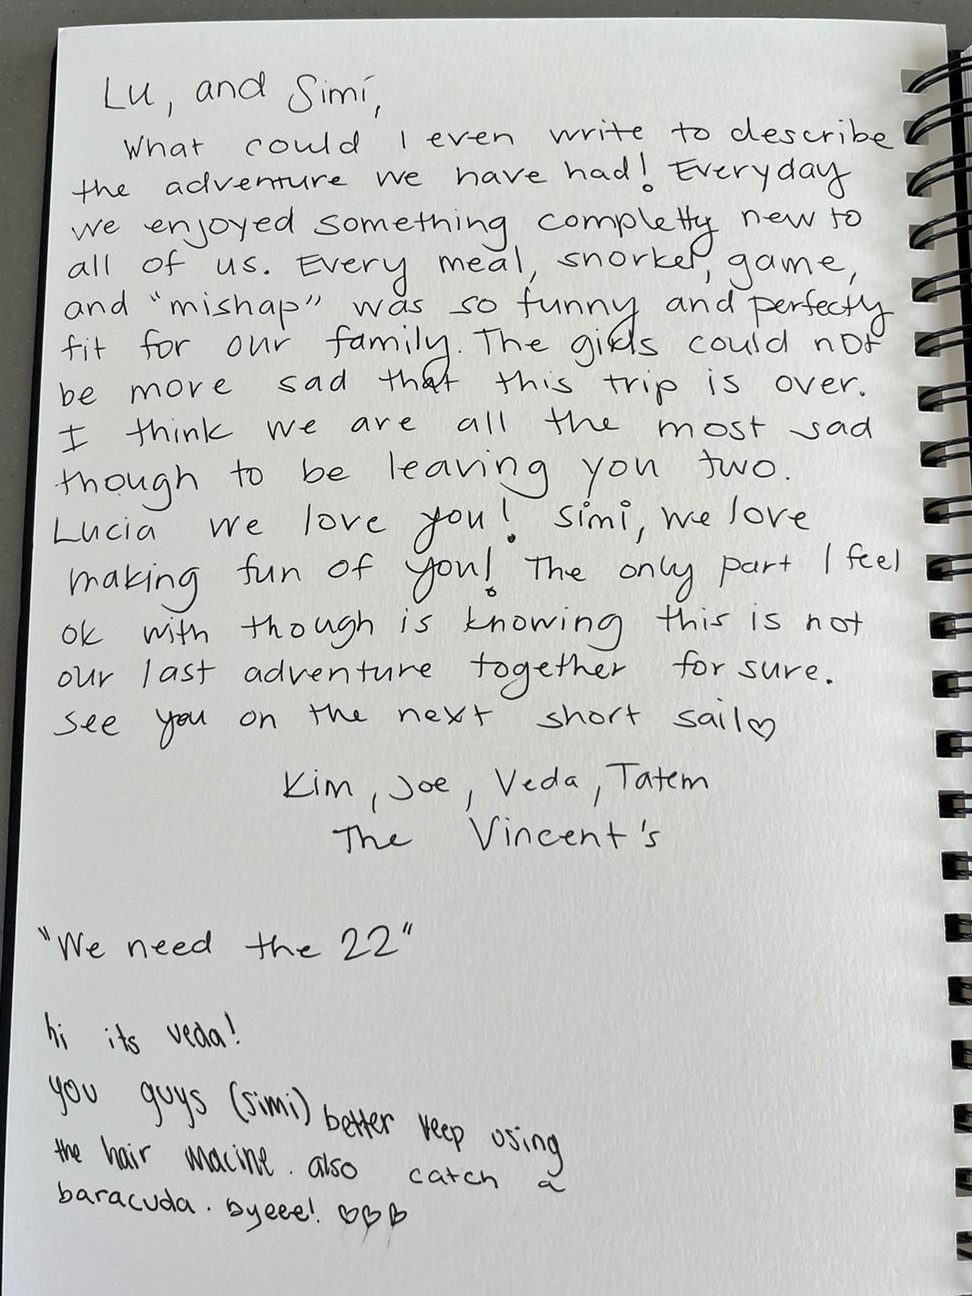 Lu, and Simi,
What could I even write to describe
the adventure we have had! Everyday
we enjoyed something completly new to
all of us. Every meal, snorkel, game,
and "mishap" was so funny and perfectly
fit for our family. The girls could not
be more sad that this trip is over.
I think we are all the most sad
though to be leaving you two.
Lucia we love you! Simi, we love
making fun of you! The only part I feel
ok with though is knowing this is not
our last adventure together for sure.
See you on the next short sail♡
Kim, Joe, Veda, Tatem
The Vincent's
"We need the 22"
hi its veda!
you guys (simi) better keep using
the hair macine. also catch a
baracuda. byeee! ♡♡♡